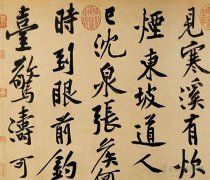 見寒溪有炊
煙東坡道人
已沈泉張矦何
時到眼前釣
臺驚濤可